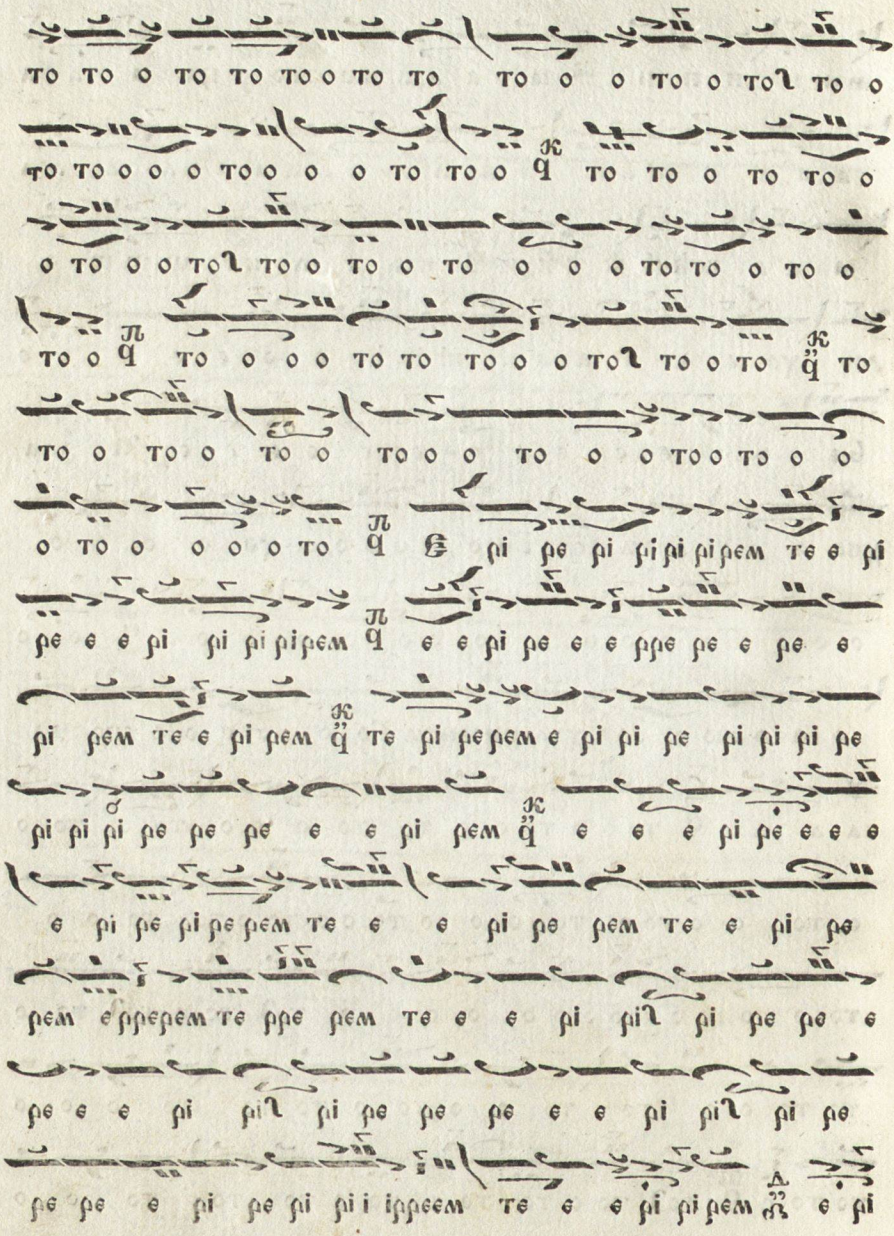 то то о то то то о то то то о о то о то то о
то то о о о то о о о то то о π̈ то то о то то о
о то о о то то о то о то о о о то то о то о
то о то о о о то то то о о то то о то то
то о то о то о то о о то о о то о то о о
о то о о о о то Є рі ре рі рі рі рі рем те е рі
ре е е рі рі рі рі рем е е рі ре е е рре ре е ре е
рі рем те е рі рем те рі ре рем е рі рі ре рі рі рі ре
рі рі рі ре ре ре е е рі рем е е е рі ре е е е
е рі ре рі ре рем те е е рі ре рем те е рі ре
рем е рре рем те рре рем те е е рі рі рі ре ре е
ре е е рі рі рі ре ре ре е е рі рі рі ре
ре ре е рі ре рі рі і ірреем те е е рі рі рем е рі